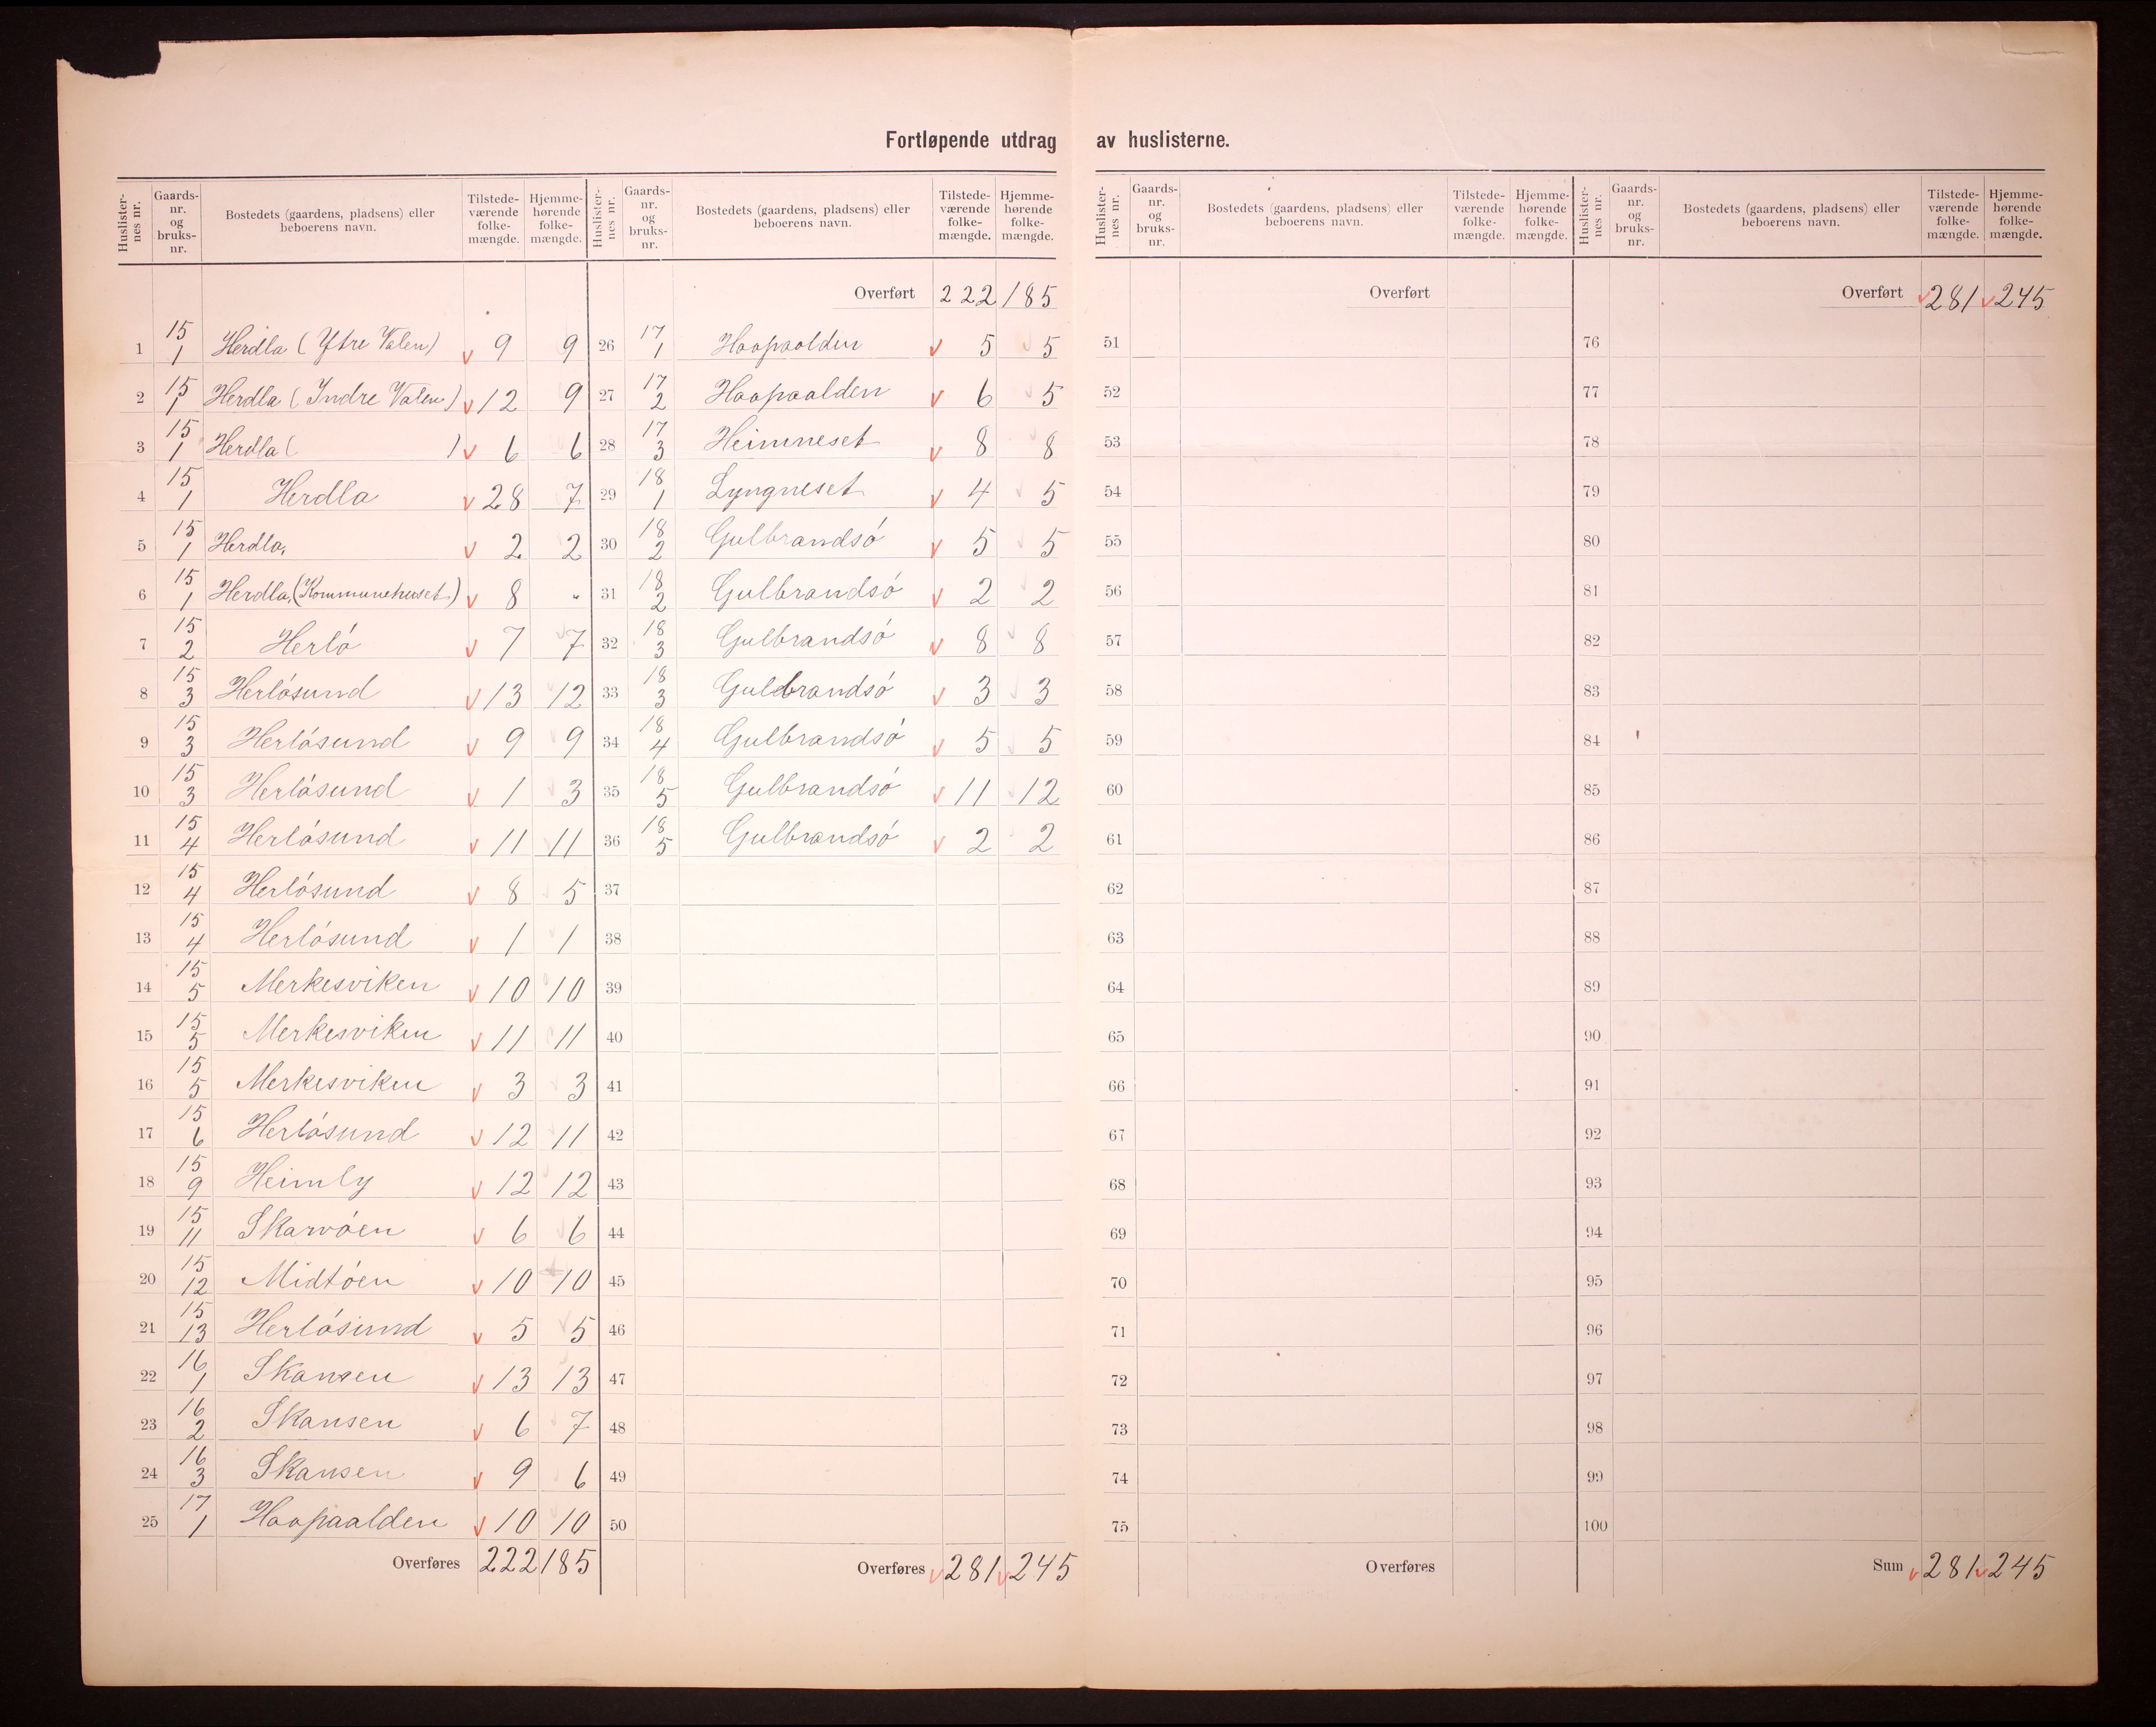 Fortløpende utdrag av huslisterne.
Huslister-nes nr. Gaards-nr. og bruks-nr. Bostedets (gaardens, pladsens) eller beboerens navn. Tilstede-værende folke-mængde. Hjemme-hørende folke-mængde.
1 15/1 Herdla (Ytre Valen) 9 9
2 15/1 Herdla (Indre Valen) 12 9
3 15/1 Herdla ( ) 6 6
4 15/1 Herdla 28 7
5 15/1 Herdla, 2 2
6 15/1 Herdla, (Kommunehuset) 8 "
7 15/2 Herló 7 7
8 15/3 Herlósund 13 12
9 15/3 Herlósund 9 9
10 15/3 Herlósund 1 3
11 15/4 Herlósund 11 11
12 15/4 Herlósund 8 5
13 15/4 Herlósund 1 1
14 15/5 Merkesviken 10 10
15 15/5 Merkesviken 11 11
16 15/5 Merkesviken 3 3
17 15/6 Herlósund 12 11
18 15/9 Heimly 12 12
19 15/11 Skarvóen 6 6
20 15/12 Midtóen 10 10
21 15/13 Herlósund 5 5
22 16/1 Skansen 13 13
23 16/2 Skansen 6 7
24 16/3 Skansen 9 6
25 17/1 Haapaalden 10 10
Overføres 222 185
Huslister-nes nr. Gaards-nr. og bruks-nr. Bostedets (gaardens, pladsens) eller beboerens navn. Tilstede-værende folke-mængde. Hjemme-hørende folke-mængde.
Overført 222 185
26 17/1 Haapaalden 5 5
27 17/2 Haapaalden 6 5
28 17/3 Heimneset 8 8
29 18/1 Lyngneset 4 5
30 18/2 Gulbrandsó 5 5
31 18/2 Gulbrandsó 2 2
32 18/3 Gulbrandsó 8 8
33 18/3 Gulbrandsó 3 3
34 18/4 Gulbrandsó 5 5
35 18/5 Gulbrandsó 11 12
36 18/5 Gulbrandsó 2 2
37
38
39
40
41
42
43
44
45
46
47
48
49
50
Overføres 281 245
Huslister-nes nr. Gaards-nr. og bruks-nr. Bostedets (gaardens, pladsens) eller beboerens navn. Tilstede-værende folke-mængde. Hjemme-hørende folke-mængde.
Overført
51
52
53
54
55
56
57
58
59
60
61
62
63
64
65
66
67
68
69
70
71
72
73
74
75
Overføres
Huslister-nes nr. Gaards-nr. og bruks-nr. Bostedets (gaardens, pladsens) eller beboerens navn. Tilstede-værende folke-mængde. Hjemme-hørende folke-mængde.
Overført 281 245
76
77
78
79
80
81
82
83
84
85
86
87
88
89
90
91
92
93
94
95
96
97
98
99
100
Sum 281 245